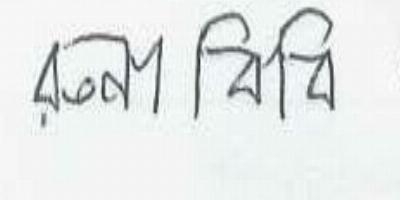 রতনা বিবি